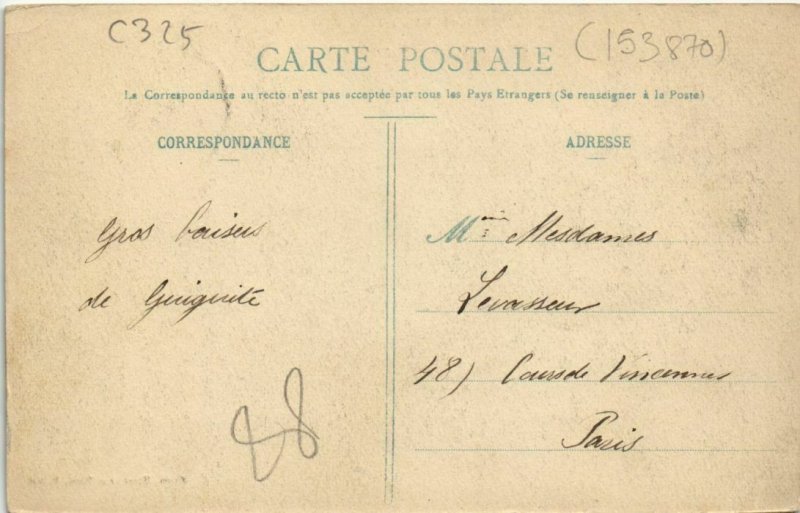 C325
(153870)
CARTE POSTALE
La Correspondance au recto n'est pas acceptée par tous les Pays Etrangers (Se renseigner à la Poste)
CORRESPONDANCE
Gros baisers
de Guiguite
88
ADRESSE
M Mesdames
Levasseur
48) Cours de Vincennes
Paris